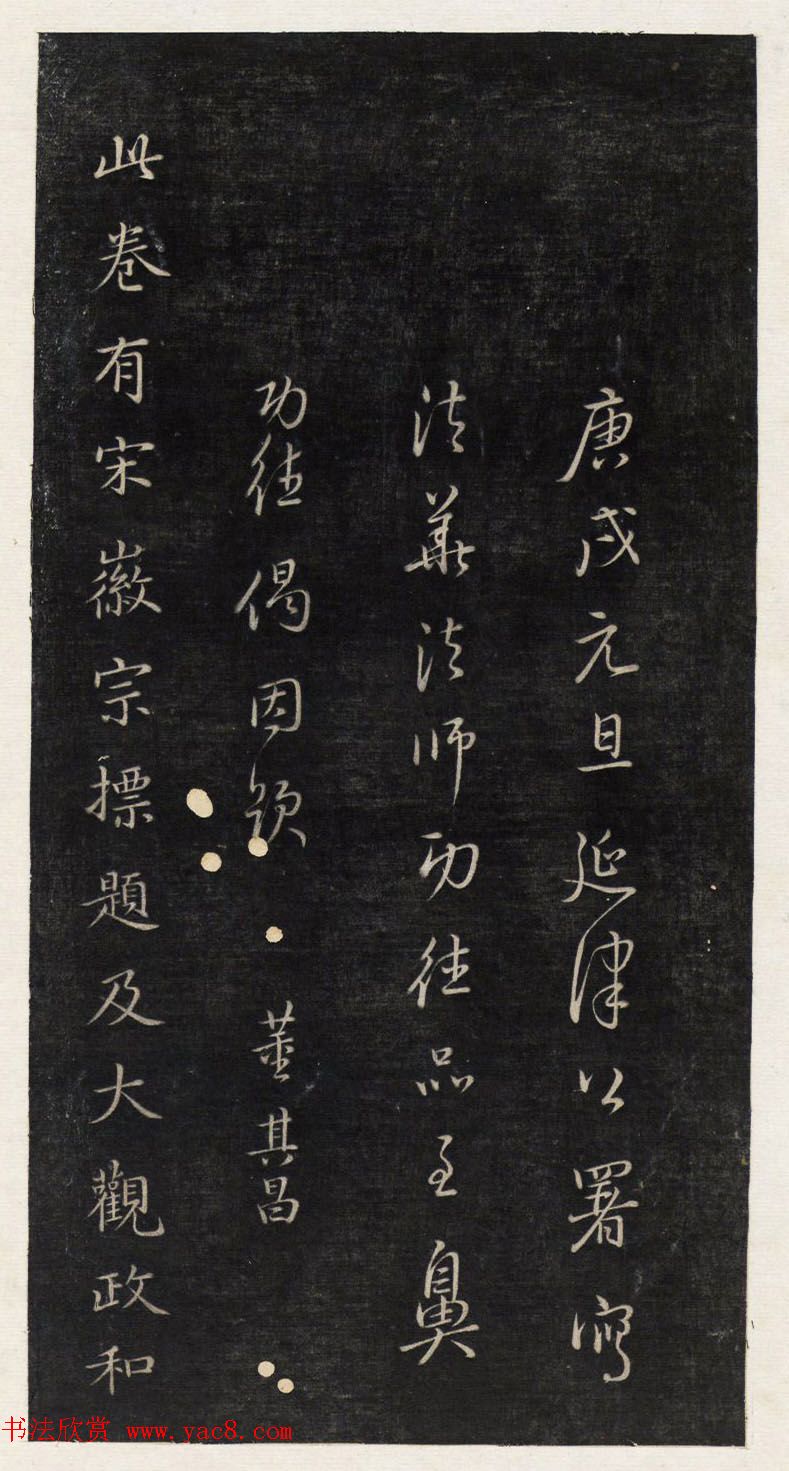 庚戌元旦延津公署寫
法華法師功德品至鼻
功德偈因題 董其昌
此卷有宋徽宗標題及大觀政和
书法欣赏 www.yac8.com